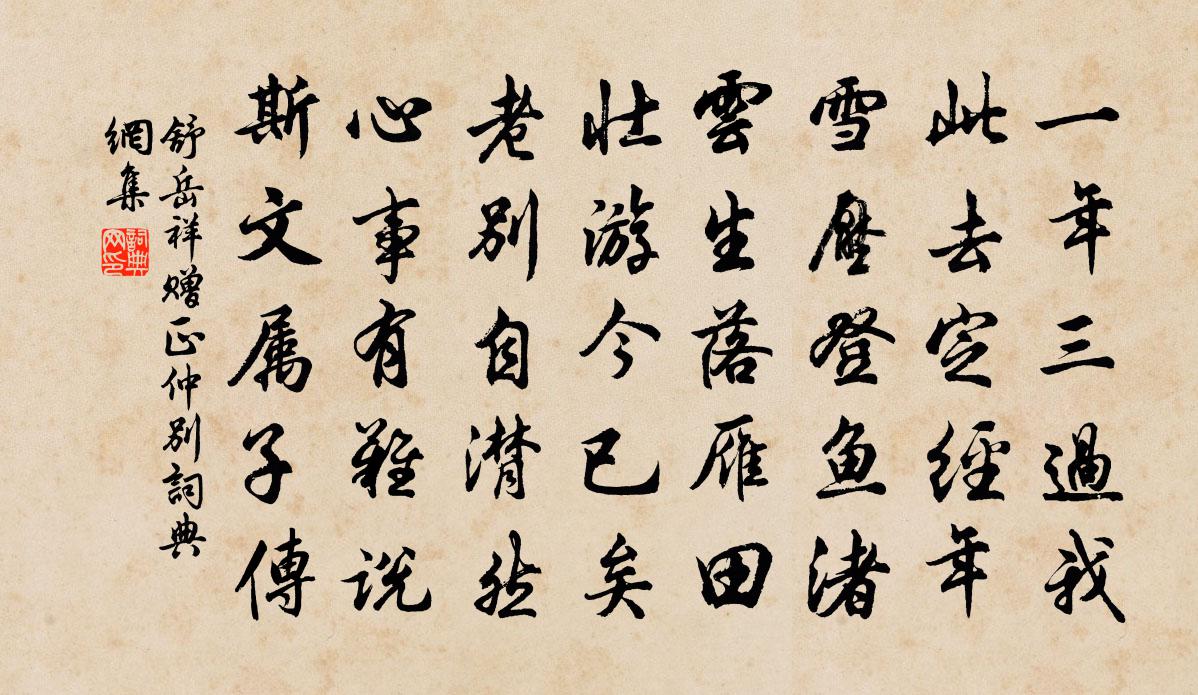 一年三過我
此去定經年
雪壓登魚渚
雲生落雁田
壯游今已矣
老別自潸然
心事有難說
斯文属子傳
舒岳祥赠正仲别詞典
網集
詞典网印